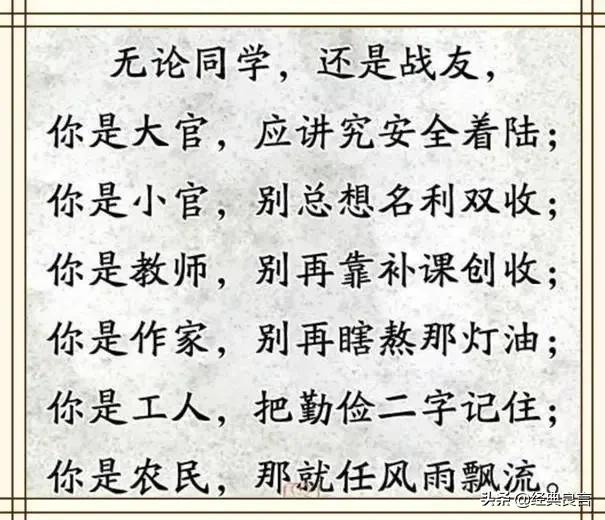 无论同学，还是战友，
你是大官，应讲究安全着陆；
你是小官，别总想名利双收；
你是教师，别再靠补课创收；
你是作家，别再瞎熬那灯油；
你是工人，把勤俭二字记住；
你是农民，那就任风雨飘流。
头条@经典良言